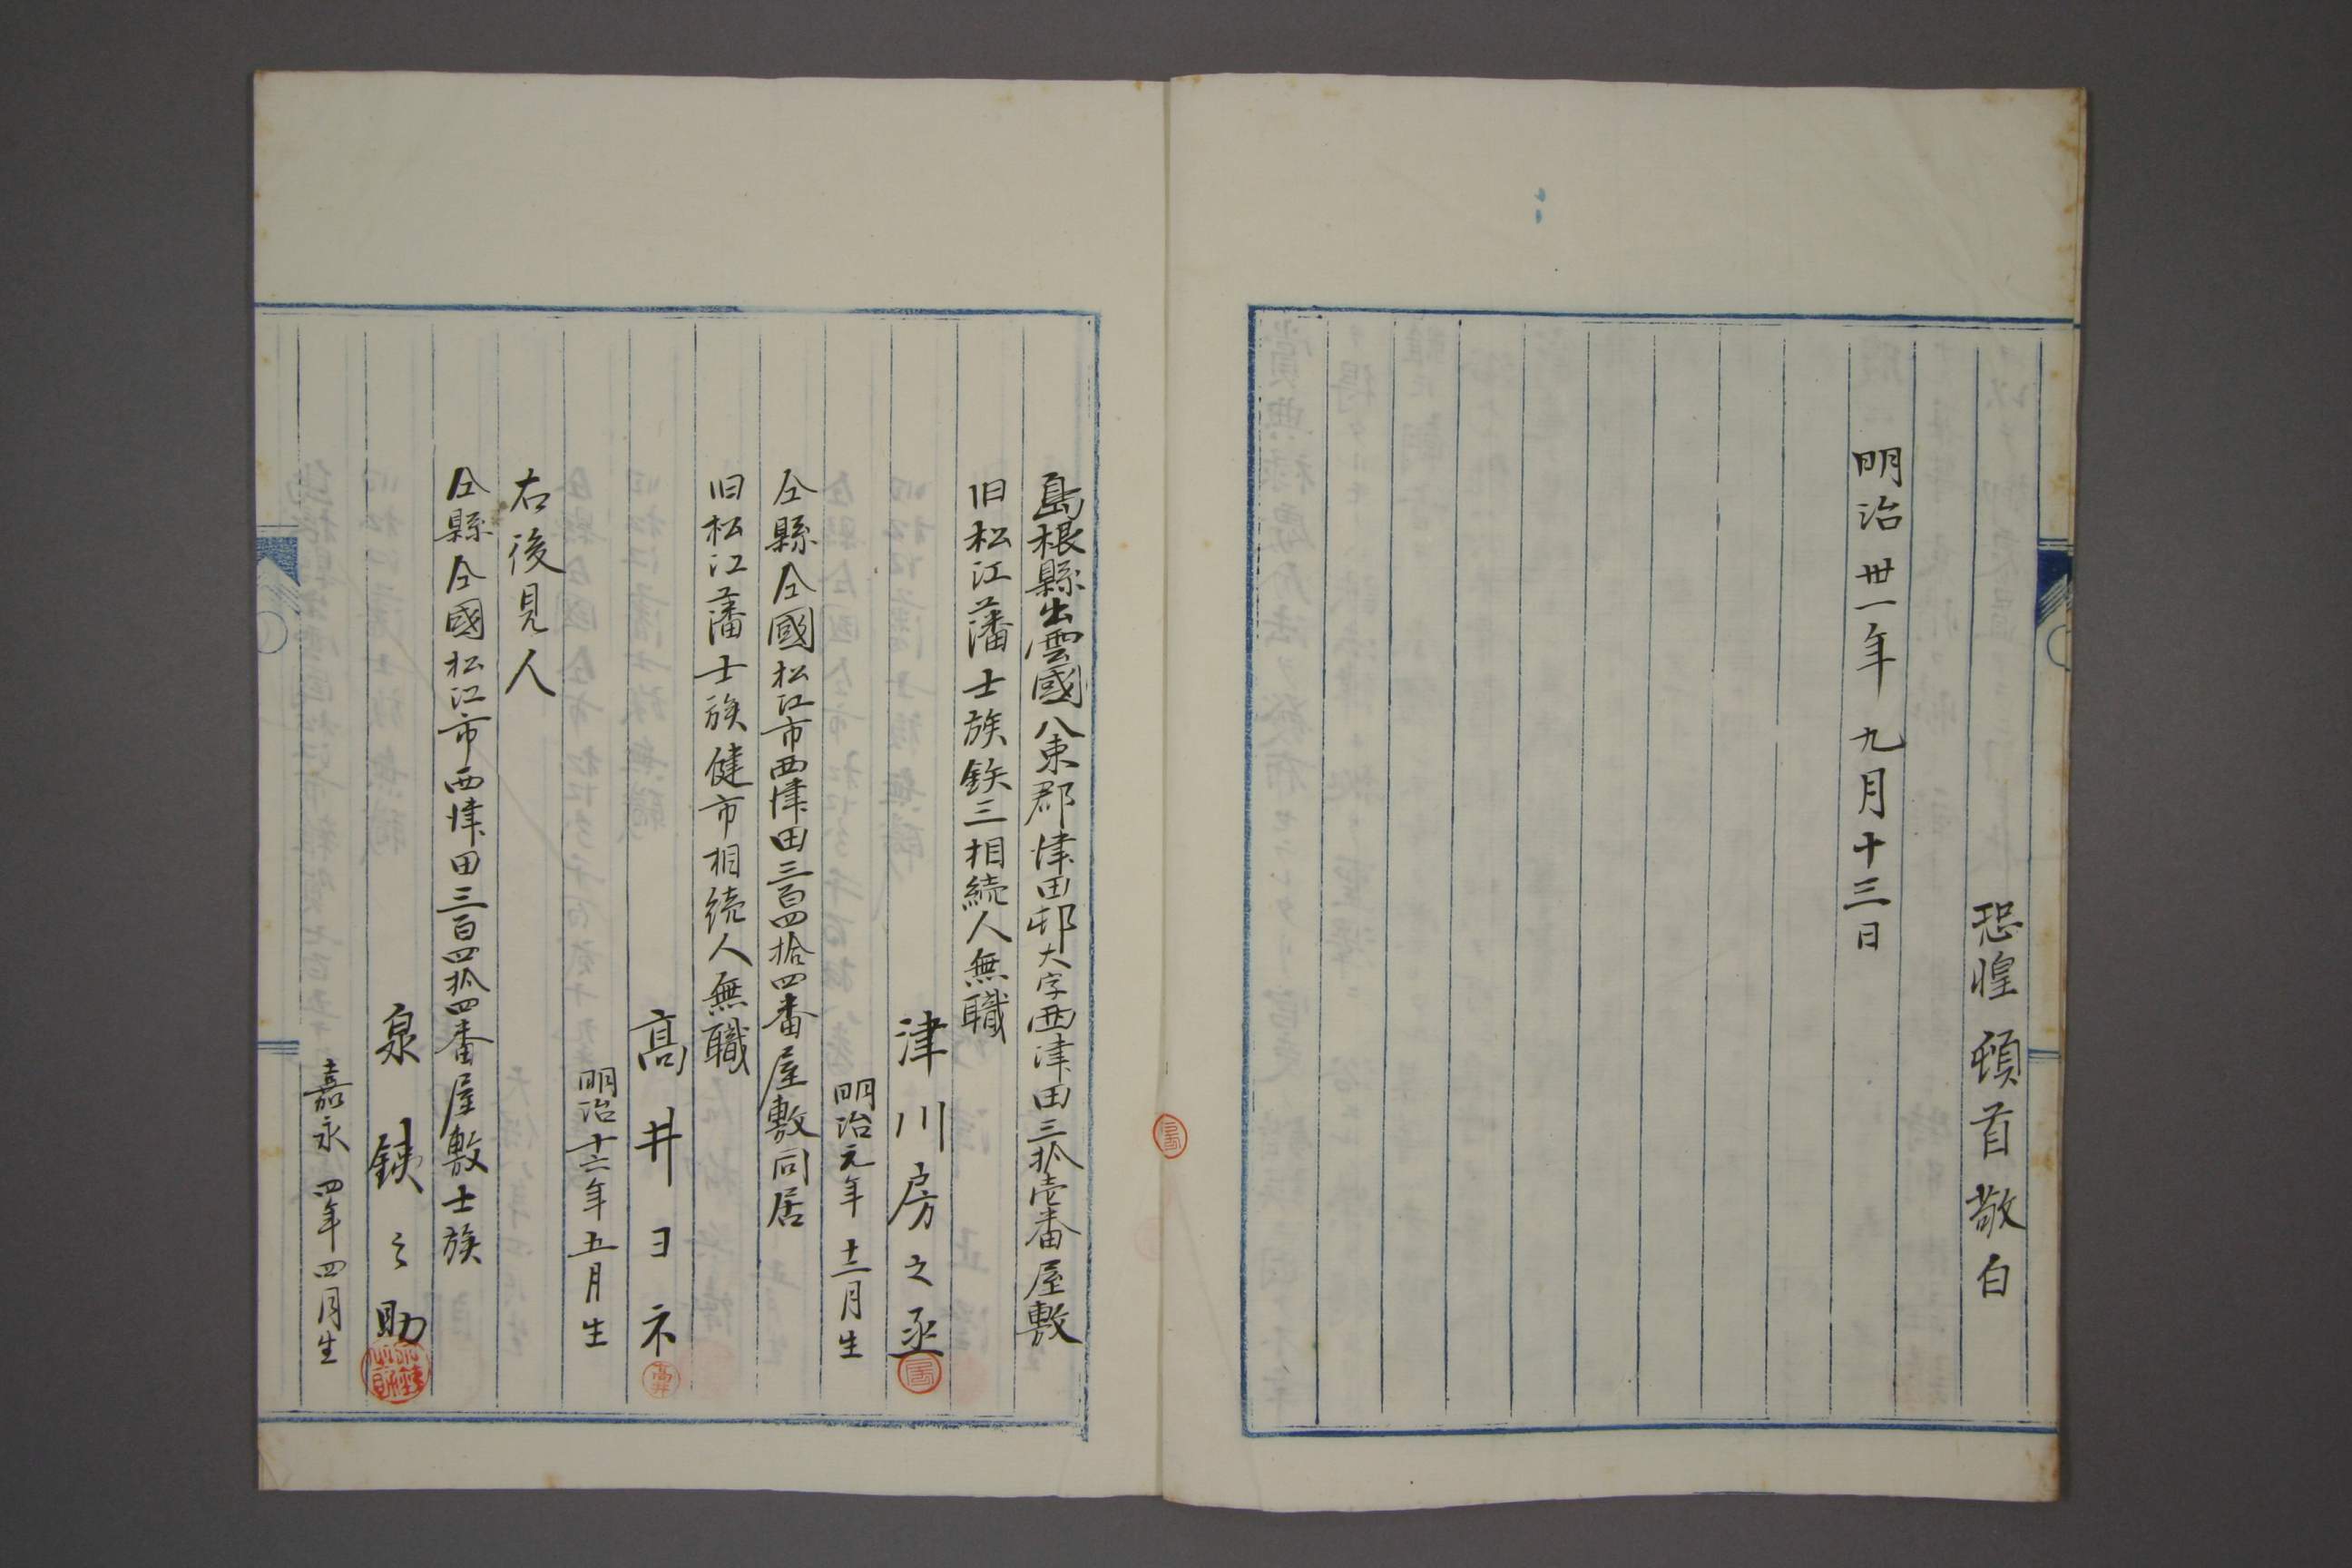 恐惶頓首敬白
明治卅一年九月十三日
島根縣出雲國八束郡津田邨大字西津田三拾壱番屋敷
旧松江藩士族鉄三相続人無職
津川房之丞
明治元年十二月生
仝縣仝國松江市西津田三百四拾四番屋敷同居
旧松江藩士族健市相続人無職
高井ヨネ
高井
明治十六年五月生
右後見人
仝縣仝國松江市西津田三百四拾四番屋敷士族
泉銕之助
嘉永四年四月生